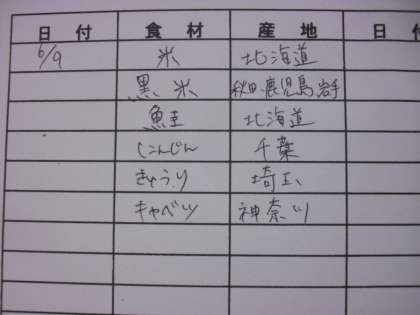 日付 食材 産地 日付
6/9 米 北海道
黒米 秋田・鹿児島岩手
鮭 北海道
にんじん 千葉
きゅうり 埼玉
キャベツ 神奈川